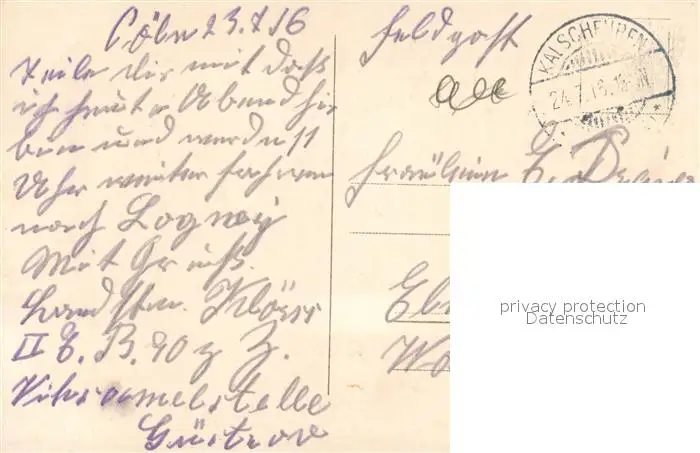 Cöln 23.7 16
Teile dir mit daß
ich heute Abend hir
bin und werde 11
Uhr weiter fahren
nach Logwy
Mit Gruß.
Landstm.
II E. B. 90 z. Z.
Güstrow
Feldpost
KALSCHEUREN
24.7.16.
Fräulein E.
privacy protection
Datenschutz